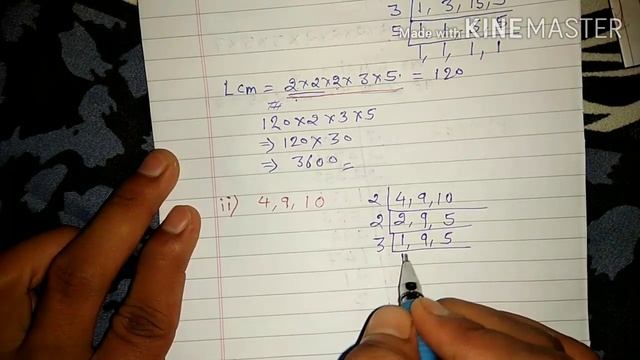 3 | 1, 3, 15, 5
Made with KINEMASTER
5
1, 1, 1, 1
Lcm = 2×2×2×3×5. = 120
120×2×3×5
⇒ 120×30
⇒ 3600 =
ii) 4, 9, 10
2 | 4, 9, 10
2 | 2, 9, 5
3 | 1, 9, 5